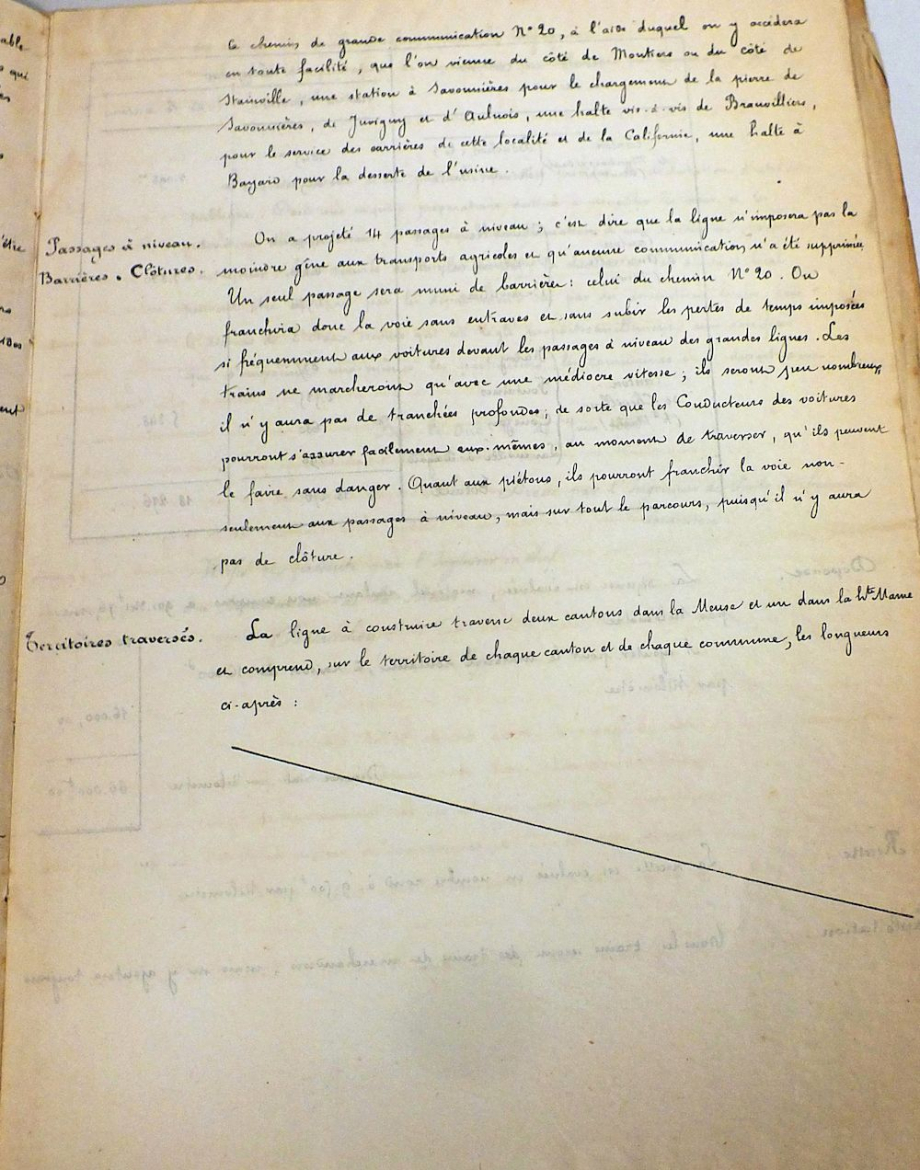 le chemin de grande communication N° 20, à l'aide duquel on y accédera
en toute facilité, que l'on vienne du côté de Montiers ou du côté de
Stainville, une station à Savonnières pour le chargement de la pierre de
Savonnières, de Juvigny et d'Aulnois, une halte vis-à-vis de Brauvilliers,
pour le service des carrières de cette localité et de la Californie, une halte à
Bayard pour la desserte de l'usine.
Passages à niveau.
Barrières. Clôtures.
On a projeté 14 passages à niveau ; c'est dire que la ligne n'imposera pas la
moindre gêne aux transports agricoles et qu'aucune communication n'a été supprimée.
Un seul passage sera muni de barrières : celui du chemin N° 20. On
franchira donc la voie sans entraves et sans subir les pertes de temps imposées
si fréquemment aux voitures devant les passages à niveau des grandes lignes. Les
trains ne marcheront qu'avec une médiocre vitesse ; ils seront peu nombreux,
il n'y aura pas de tranchées profondes, de sorte que les Conducteurs des voitures
pourront s'assurer facilement eux-mêmes, au moment de traverser, qu'ils peuvent
le faire sans danger. Quant aux piétons, ils pourront franchir la voie non-
seulement aux passages à niveau, mais sur tout le parcours, puisqu'il n'y aura
pas de clôture.
Territoires traversés.
La ligne à construire traverse deux cantons dans la Meuse et un dans la Hte Marne
et comprend, sur le territoire de chaque canton et de chaque commune, les longueurs
ci-après :